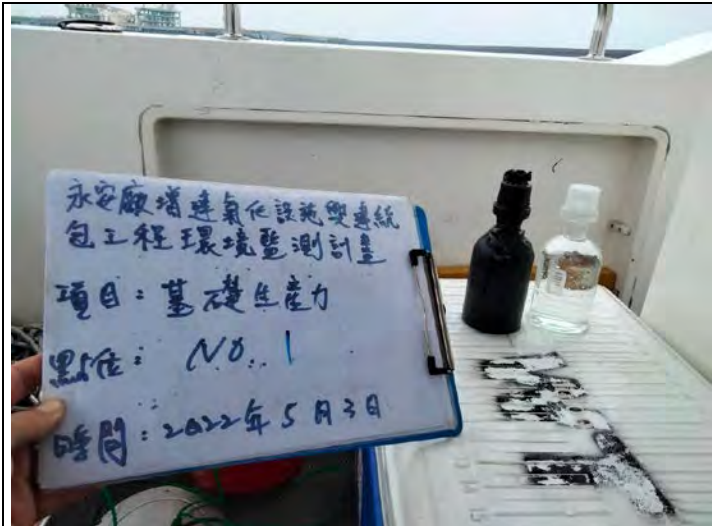 永安廠增建氣化設施雙專統
包工程環境監測計畫
項目：基礎生產力
點位： NO. 1
時間：2022年5月3日